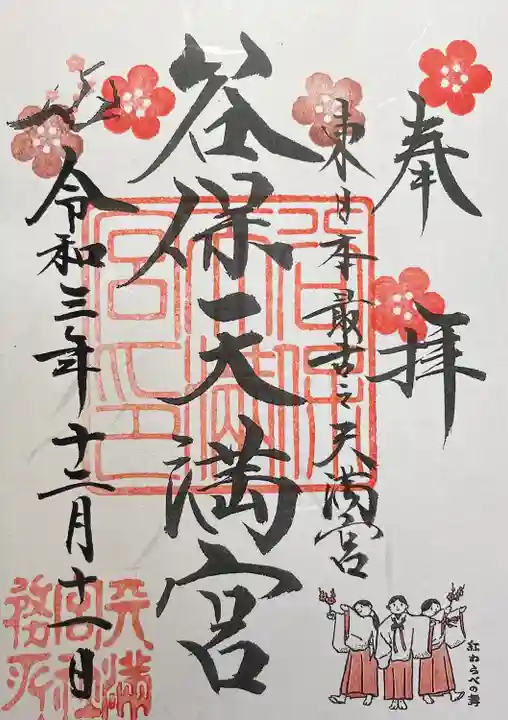 奉拝
東日本最古之天満宮
谷保天満宮
令和三年十二月十一日
紅わらべの舞
天満宮社務所